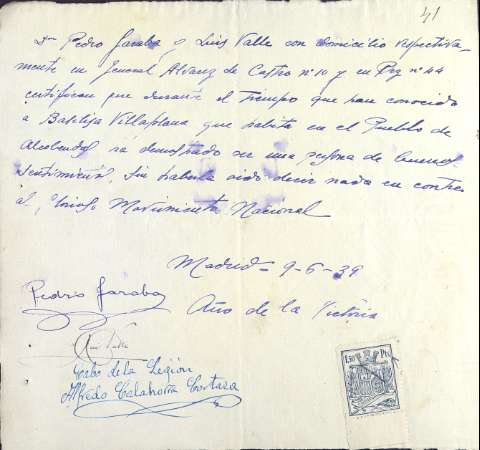 41
Don Pedro Garaba y Luis Valle con domicilio respectiva-
mente en General Alvarez de Castro nº 10 y en Paz nº 44
certifican que durante el tiempo que han conocido
a Basilisa Villaplana que habita en el Pueblo de
Alcobendas ha demostrado ser una persona de buenos
sentimientos, sin haberla oido decir nada en contra
al Glorioso Movimiento Nacional
Madrid - 9-6-39
Año de la Victoria
Pedro Garaba
Luis Valle
Cabo de la Legión
Alfredo Calahorra Cortaza
1,50 Pts